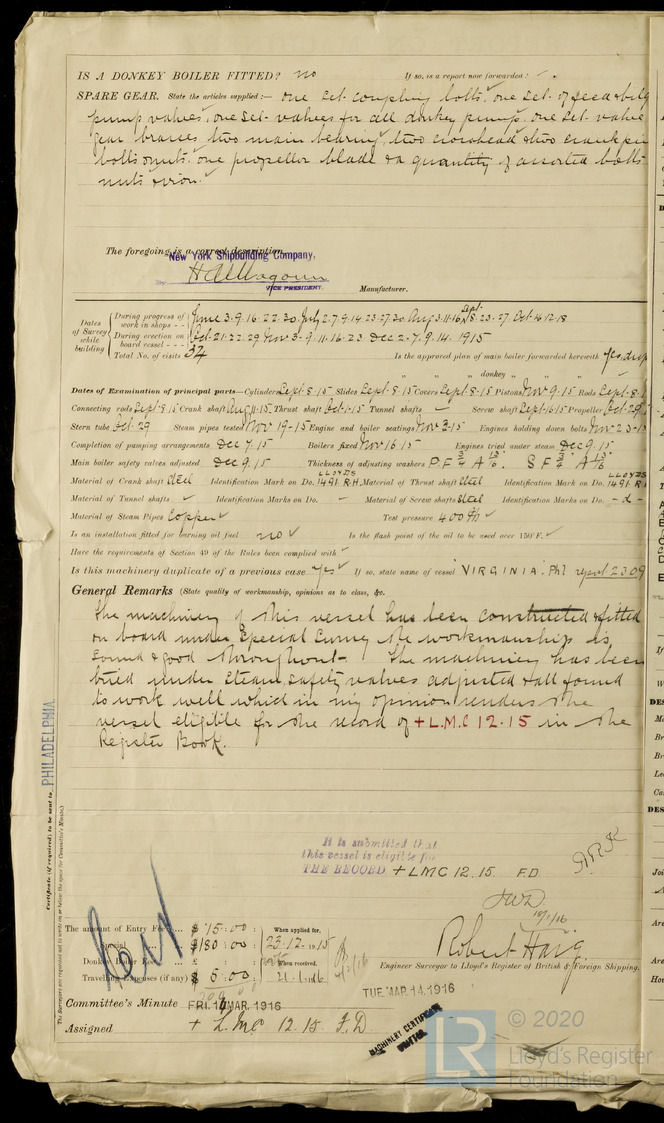 IS A DONKEY BOILER FITTED? no If so, is a report now forwarded?
SPARE GEAR. State the articles supplied:— one set coupling bolts, one set of feed & bilge
pump valves, one set valves for all donkey pumps, one set valve
gear brasses, two main bearing, two crosshead & two crank pin
bolts & nuts, one propeller blade & a quantity of assorted bolts
nuts & iron.
The foregoing is a correct description,
New York Shipbuilding Company,
VICE PRESIDENT. Manufacturer.
Dates of Survey while building
During progress of work in shops - - June 3. 9. 16. 22. 30. July 2. 7. 9. 14. 23. 27. 30. Aug 3. 11. 16. Sept. 8. 23. 27 Oct. 14. 12. 18
During erection on board vessel - - - Oct. 21. 22. 29 Nov 3. 9. 11. 16. 23 Dec 2. 7. 9. 14. 1915
Total No. of visits 34 Is the approved plan of main boiler forwarded herewith Yes
" " " donkey " " "
Dates of Examination of principal parts—Cylinders Sept. 8. 15 Slides Sept. 8. 15 Covers Sept. 8. 15 Pistons Nov 9. 15 Rods Sept. 8.
Connecting rods Sept. 8. 15 Crank shaft Aug 11. 15 Thrust shaft Oct. 1. 15 Tunnel shafts — Screw shaft Sept. 16. 15 Propeller Oct. 29
Stern tube Oct. 29 Steam pipes tested Nov 19 - 15 Engine and boiler seatings Nov 3. 15 Engines holding down bolts Nov 23. 15
Completion of pumping arrangements Dec 7. 15 Boilers fixed Nov 16. 15 Engines tried under steam Dec 9. 15
Main boiler safety valves adjusted Dec 9. 15 Thickness of adjusting washers P F 3/4 A 13/16. S F 3/4 A 13/16
Material of Crank shaft Steel Identification Mark on Do. LLOYDS 1491 R.H. Material of Thrust shaft Steel Identification Mark on Do. LLOYDS 1491 R
Material of Tunnel shafts Identification Marks on Do. — Material of Screw shafts Steel Identification Marks on Do. - d -
Material of Steam Pipes Copper Test pressure 400 lb
Is an installation fitted for burning oil fuel no Is the flash point of the oil to be used over 150°F.
Have the requirements of Section 49 of the Rules been complied with
Is this machinery duplicate of a previous case Yes If so, state name of vessel "VIRGINIA". Phl report 2309
General Remarks (State quality of workmanship, opinions as to class, &c.
The machinery of this vessel has been constructed & fitted
on board under Special Survey the workmanship is
sound & good throughout. The machinery has been
tried under steam, safety valves adjusted & all found
to work well which in my opinion renders the
vessel eligible for the record of + L.M.C 12.15 in the
Register Book.
Certificate (if required) to be sent to PHILADELPHIA.
(The Surveyors are requested not to write on or below the space for Committee's Minute.)
It is submitted that
this vessel is eligible for
THE RECORD + LMC 12. 15. F.D.
JWD.
The amount of Entry Fee ... $ 15.00 When applied for,
Special ... $180.00 23.12.1915
Donkey Boiler Fee ... £ When received,
Travelling Expenses (if any) $ 5.00 21.1.1916
Robert Haig
Engineer Surveyor to Lloyd's Register of British & Foreign Shipping.
Committee's Minute FRI. MAR. 1916 TUE. MAR. 14. 1916
Assigned + LMC 12. 15. F.D.
MACHINERY CERTIFICATE
LR © 2020
Lloyd's Register
Foundation